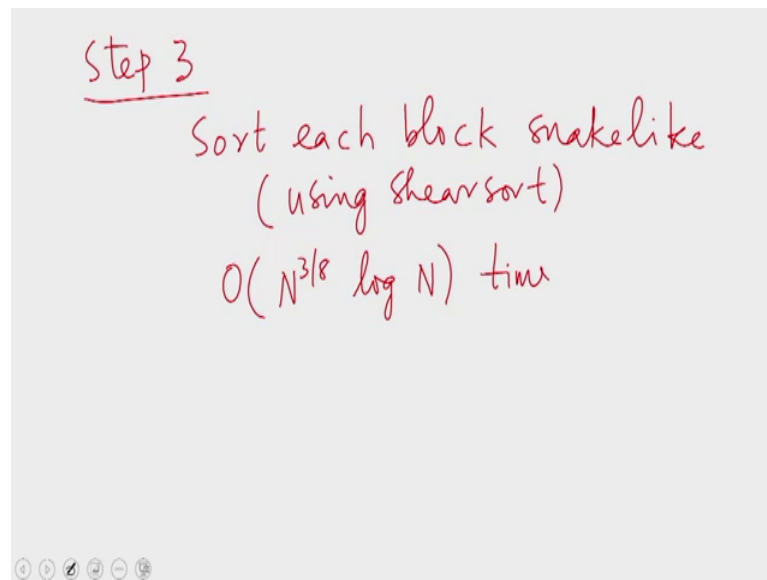 Step 3
Sort each block snakelike
(using Shearsort)
O( N^{3/8} log N) time